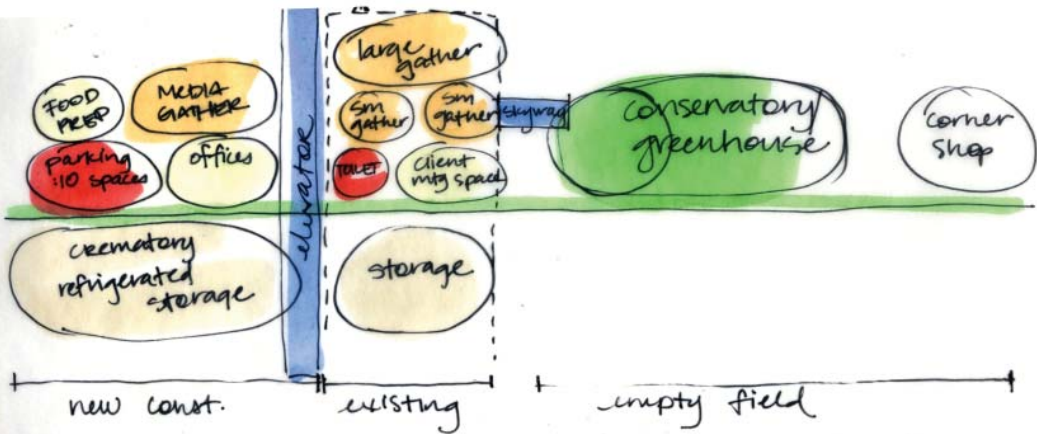 FOOD
PREP
MEDIA
GATHER
parking
:10 spaces
offices
elevator
large
gather
sm
gather
sm
gather
skyway
TOILET
client
mtg space
conservatory/
greenhouse
corner
shop
crematory
refrigerated
storage
storage
new const.
existing
empty field